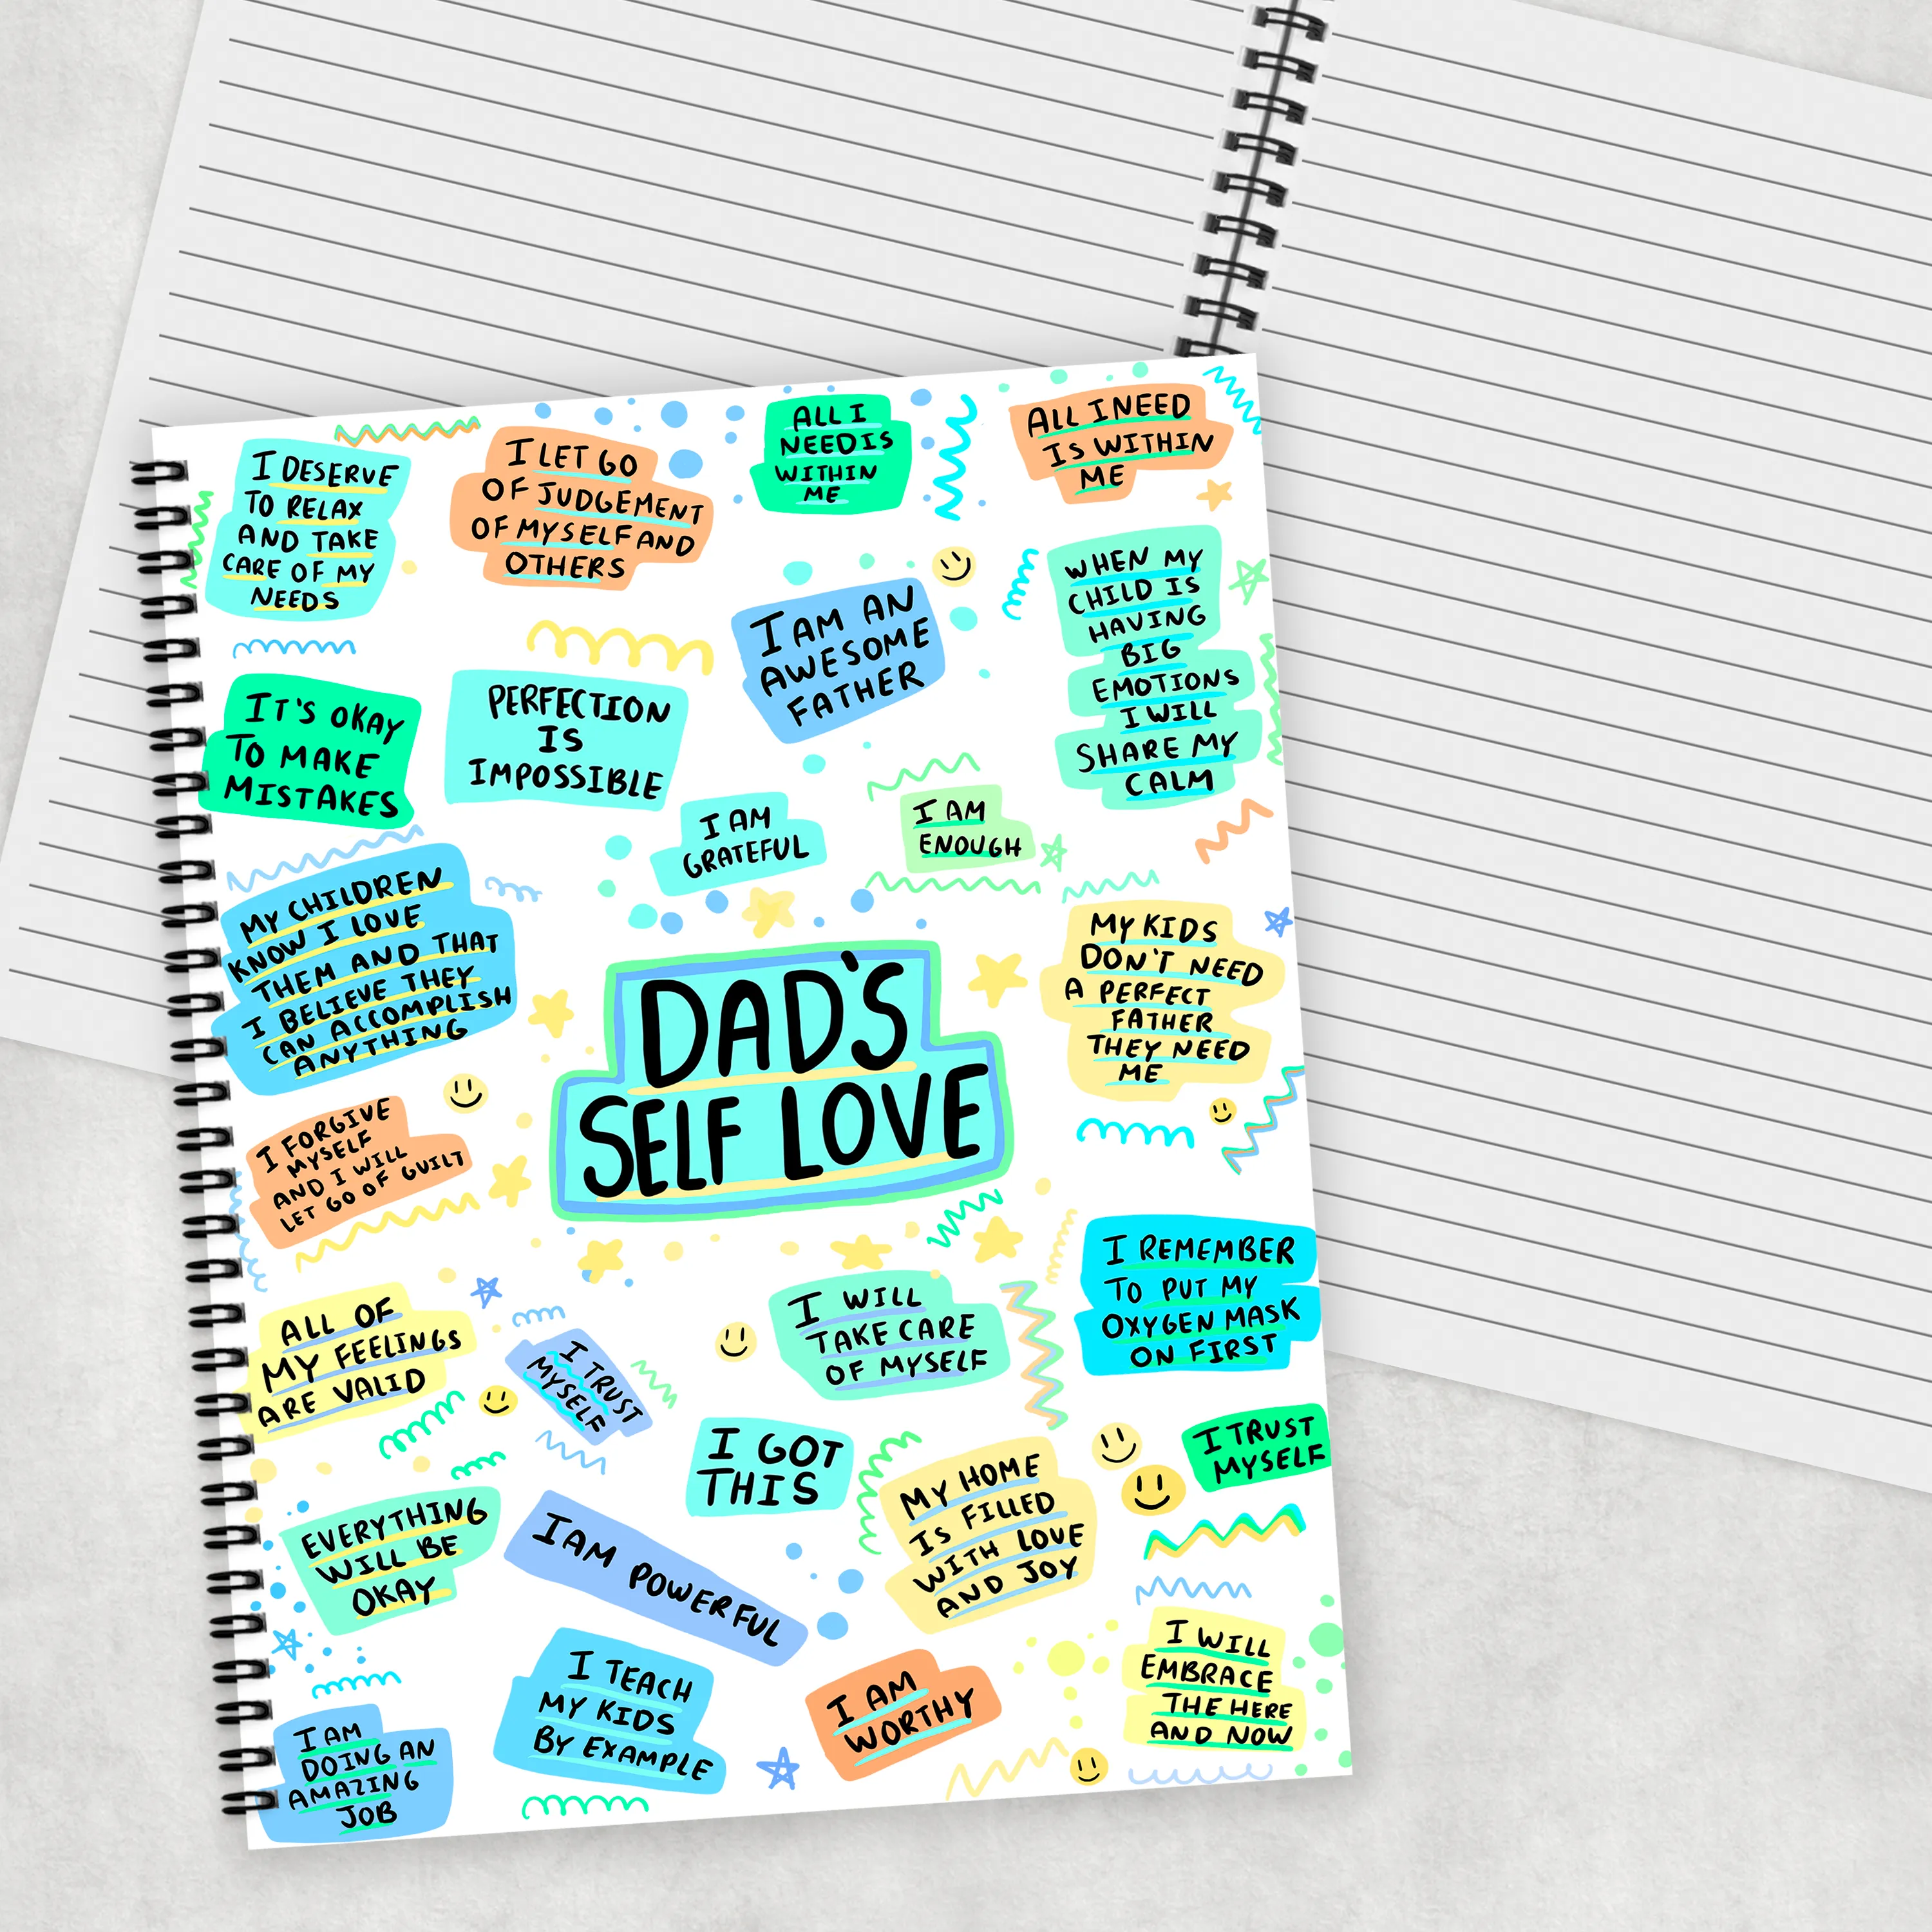 I DESERVE
TO RELAX
AND TAKE
CARE OF MY
NEEDS
I LET GO
OF JUDGEMENT
OF MYSELF AND
OTHERS
ALL I
NEED IS
WITHIN
ME
ALL I NEED
IS WITHIN
ME
I AM AN
AWESOME
FATHER
WHEN MY
CHILD IS
HAVING
BIG
EMOTIONS
I WILL
SHARE MY
CALM
IT'S OKAY
TO MAKE
MISTAKES
PERFECTION
IS
IMPOSSIBLE
I AM
GRATEFUL
I AM
ENOUGH
MY CHILDREN
KNOW I LOVE
THEM AND THAT
I BELIEVE THEY
CAN ACCOMPLISH
ANYTHING
DAD'S
SELF LOVE
MY KIDS
DON'T NEED
A PERFECT
FATHER
THEY NEED
ME
I FORGIVE
MYSELF
AND I WILL
LET GO OF GUILT
ALL OF
MY FEELINGS
ARE VALID
I TRUST
MYSELF
I WILL
TAKE CARE
OF MYSELF
I REMEMBER
TO PUT MY
OXYGEN MASK
ON FIRST
I GOT
THIS
MY HOME
IS FILLED
WITH LOVE
AND JOY
I TRUST
MYSELF
EVERYTHING
WILL BE
OKAY
I AM POWERFUL
I AM
DOING AN
AMAZING
JOB
I TEACH
MY KIDS
BY EXAMPLE
I AM
WORTHY
I WILL
EMBRACE
THE HERE
AND NOW